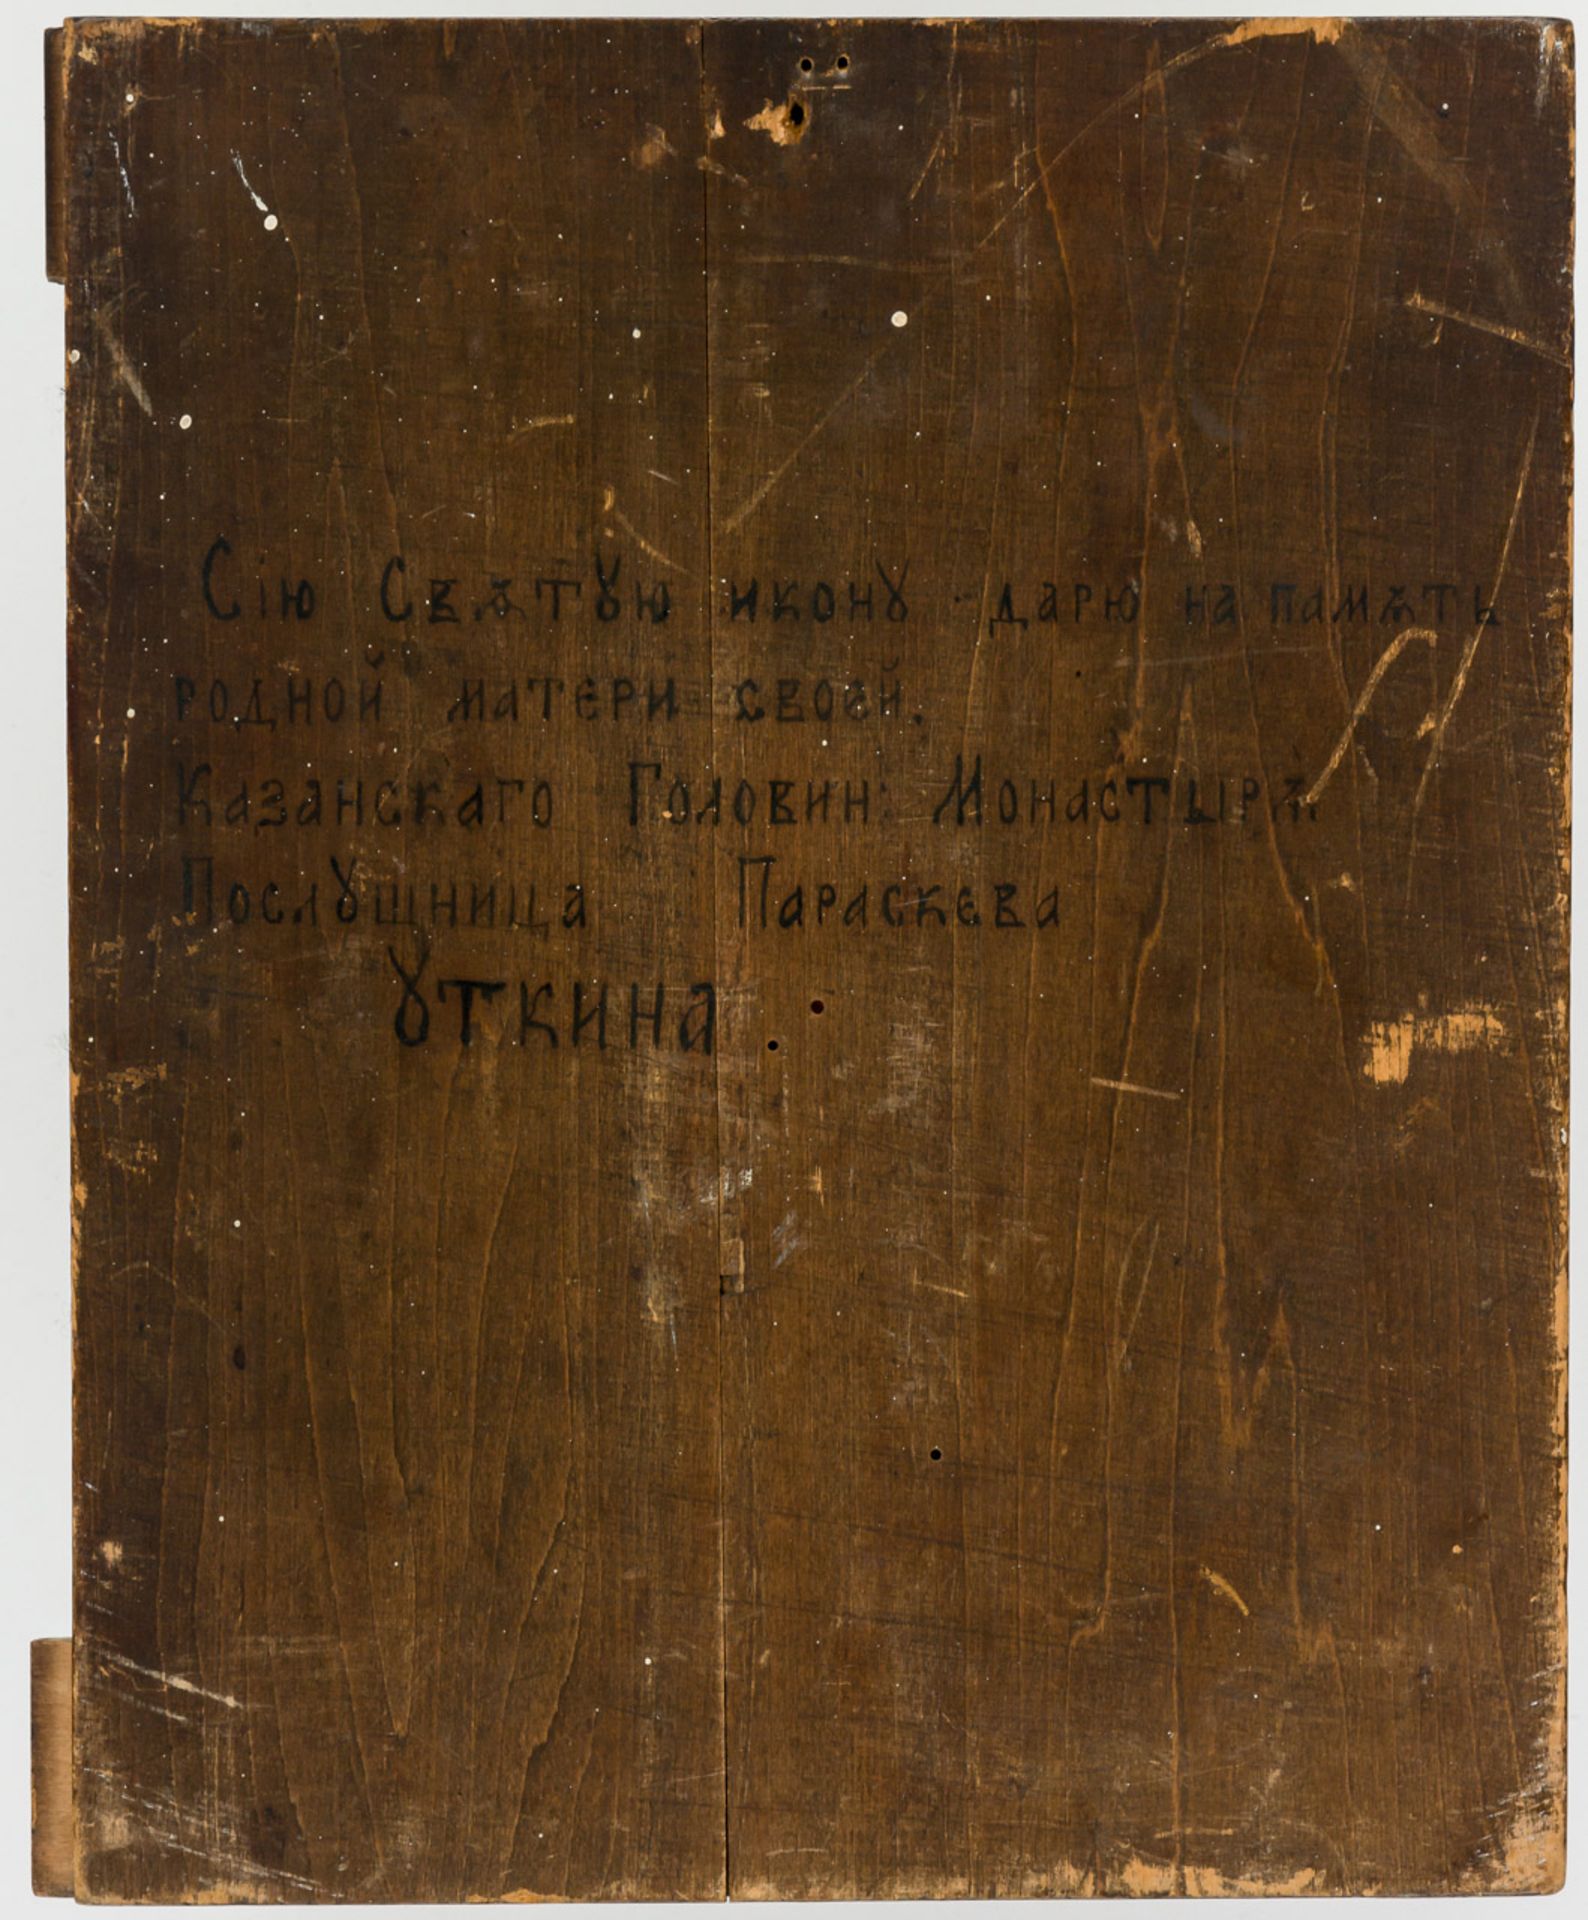 Сію Свѧтꙋю иконꙋ дарю на памѧть
родной матери своей.
Казанскаго Головин: Монастырѧ
Послꙋшница Параскева
Ꙋткина